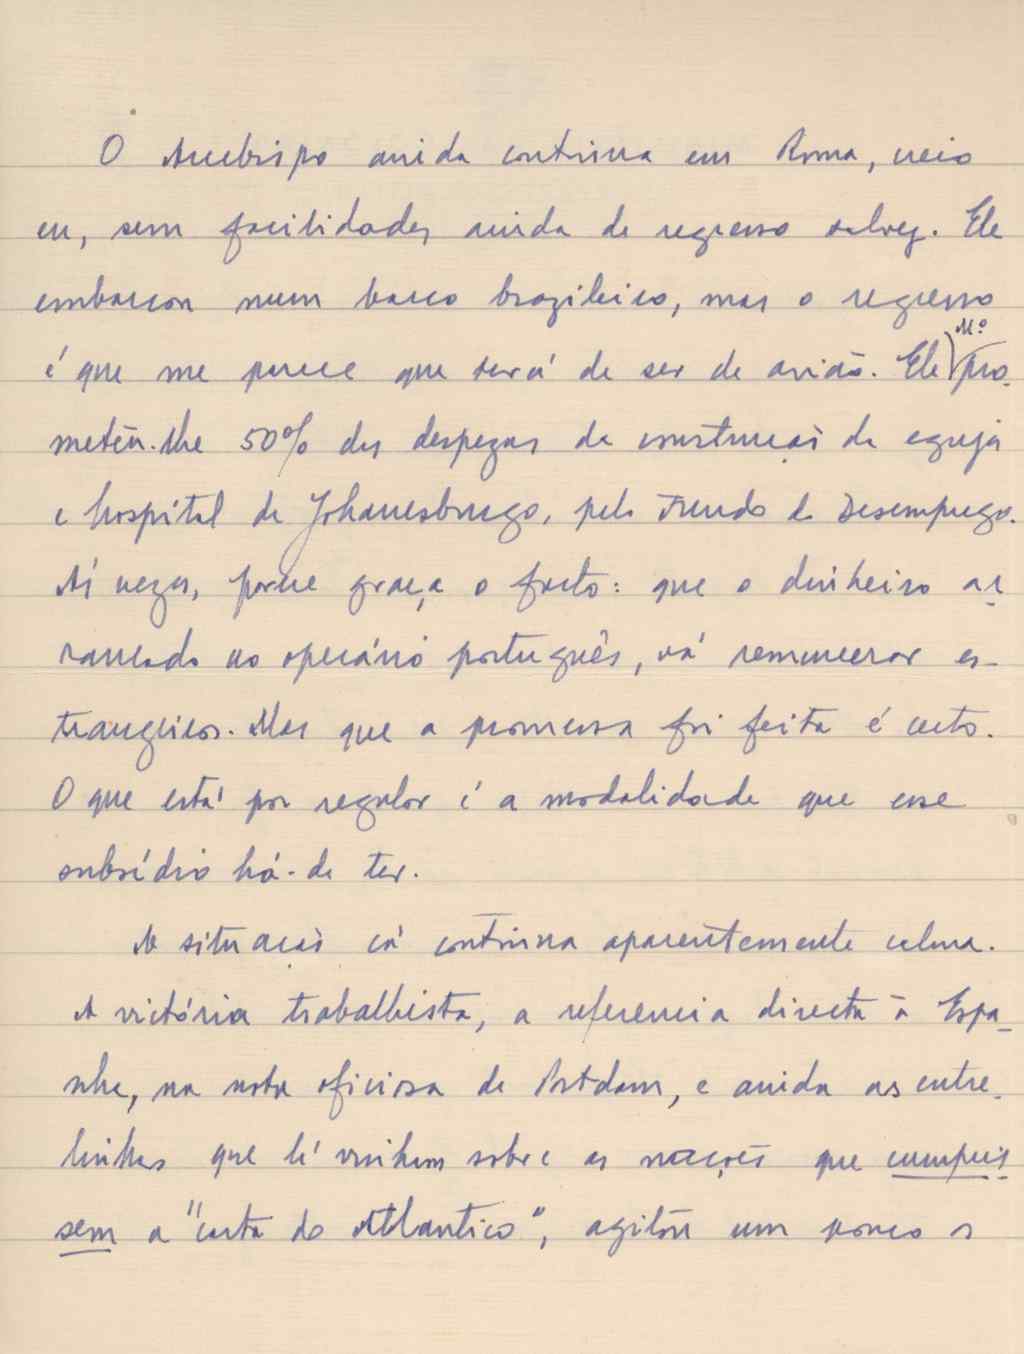 O Arcebispo ainda continua em Roma, creio
eu, sem facilidades ainda de regresso talvez. Ele
embarcou num barco brazileiro, mas o regresso
é que me parece que terá de ser de avião. Ele M.º pro-
meteu-lhe 50% das despezas da construção da egreja
e hospital de Johanesburgo, pelo Fundo de Desemprego.
Ás vezes, parece graça o facto: que o dinheiro ar-
rancado ao operário português, vá remunerar es-
trangeiros. Mas que a promessa foi feita é certo.
O que está por regular é a modalidade que esse
subsídio há-de ter.
A situação cá continua aparentemente calma.
A victória trabalhista, a referencia directa à Espa-
nha, na nota oficiosa de Potsdam, e ainda as entre-
linhas que lá vinham sobre as nações que cumpris-
sem a "carta do Atlantico", agitou um pouco o